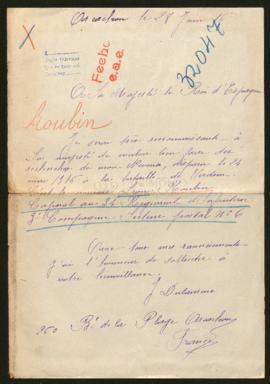 Arcachon le 28 Juin
X
Fecho
e.a.e.
32047
A Sa Majesté le Roi d'Espagne
Moubin
Je vous suis reconnaissant, à
Sa Majesté de vouloir bien faire des
recherches de mon Neveu, disparu le 24
mai 1916 à la bataille de Verdun.
Caporal au 34 Régiment d'Infanterie
3e Compagnie Secteur postal No 6
Avec tous mes remerciements
J'ai l'honneur de solliciter à
votre bienveillance,
J
260 Bd de la Plage Arcachon
France